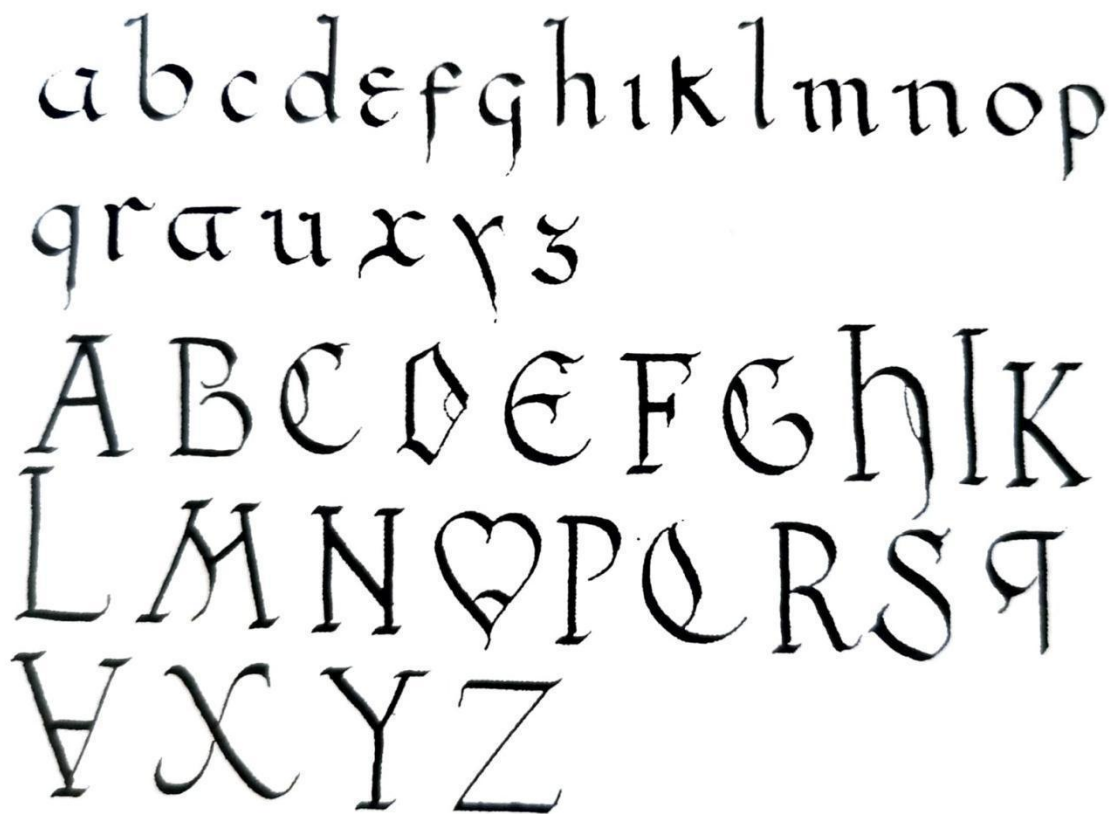 a b c d e f g h i k l m n o p
q r t u x y z
A B C D E F G H I K
L M N O P Q R S T
V X Y Z